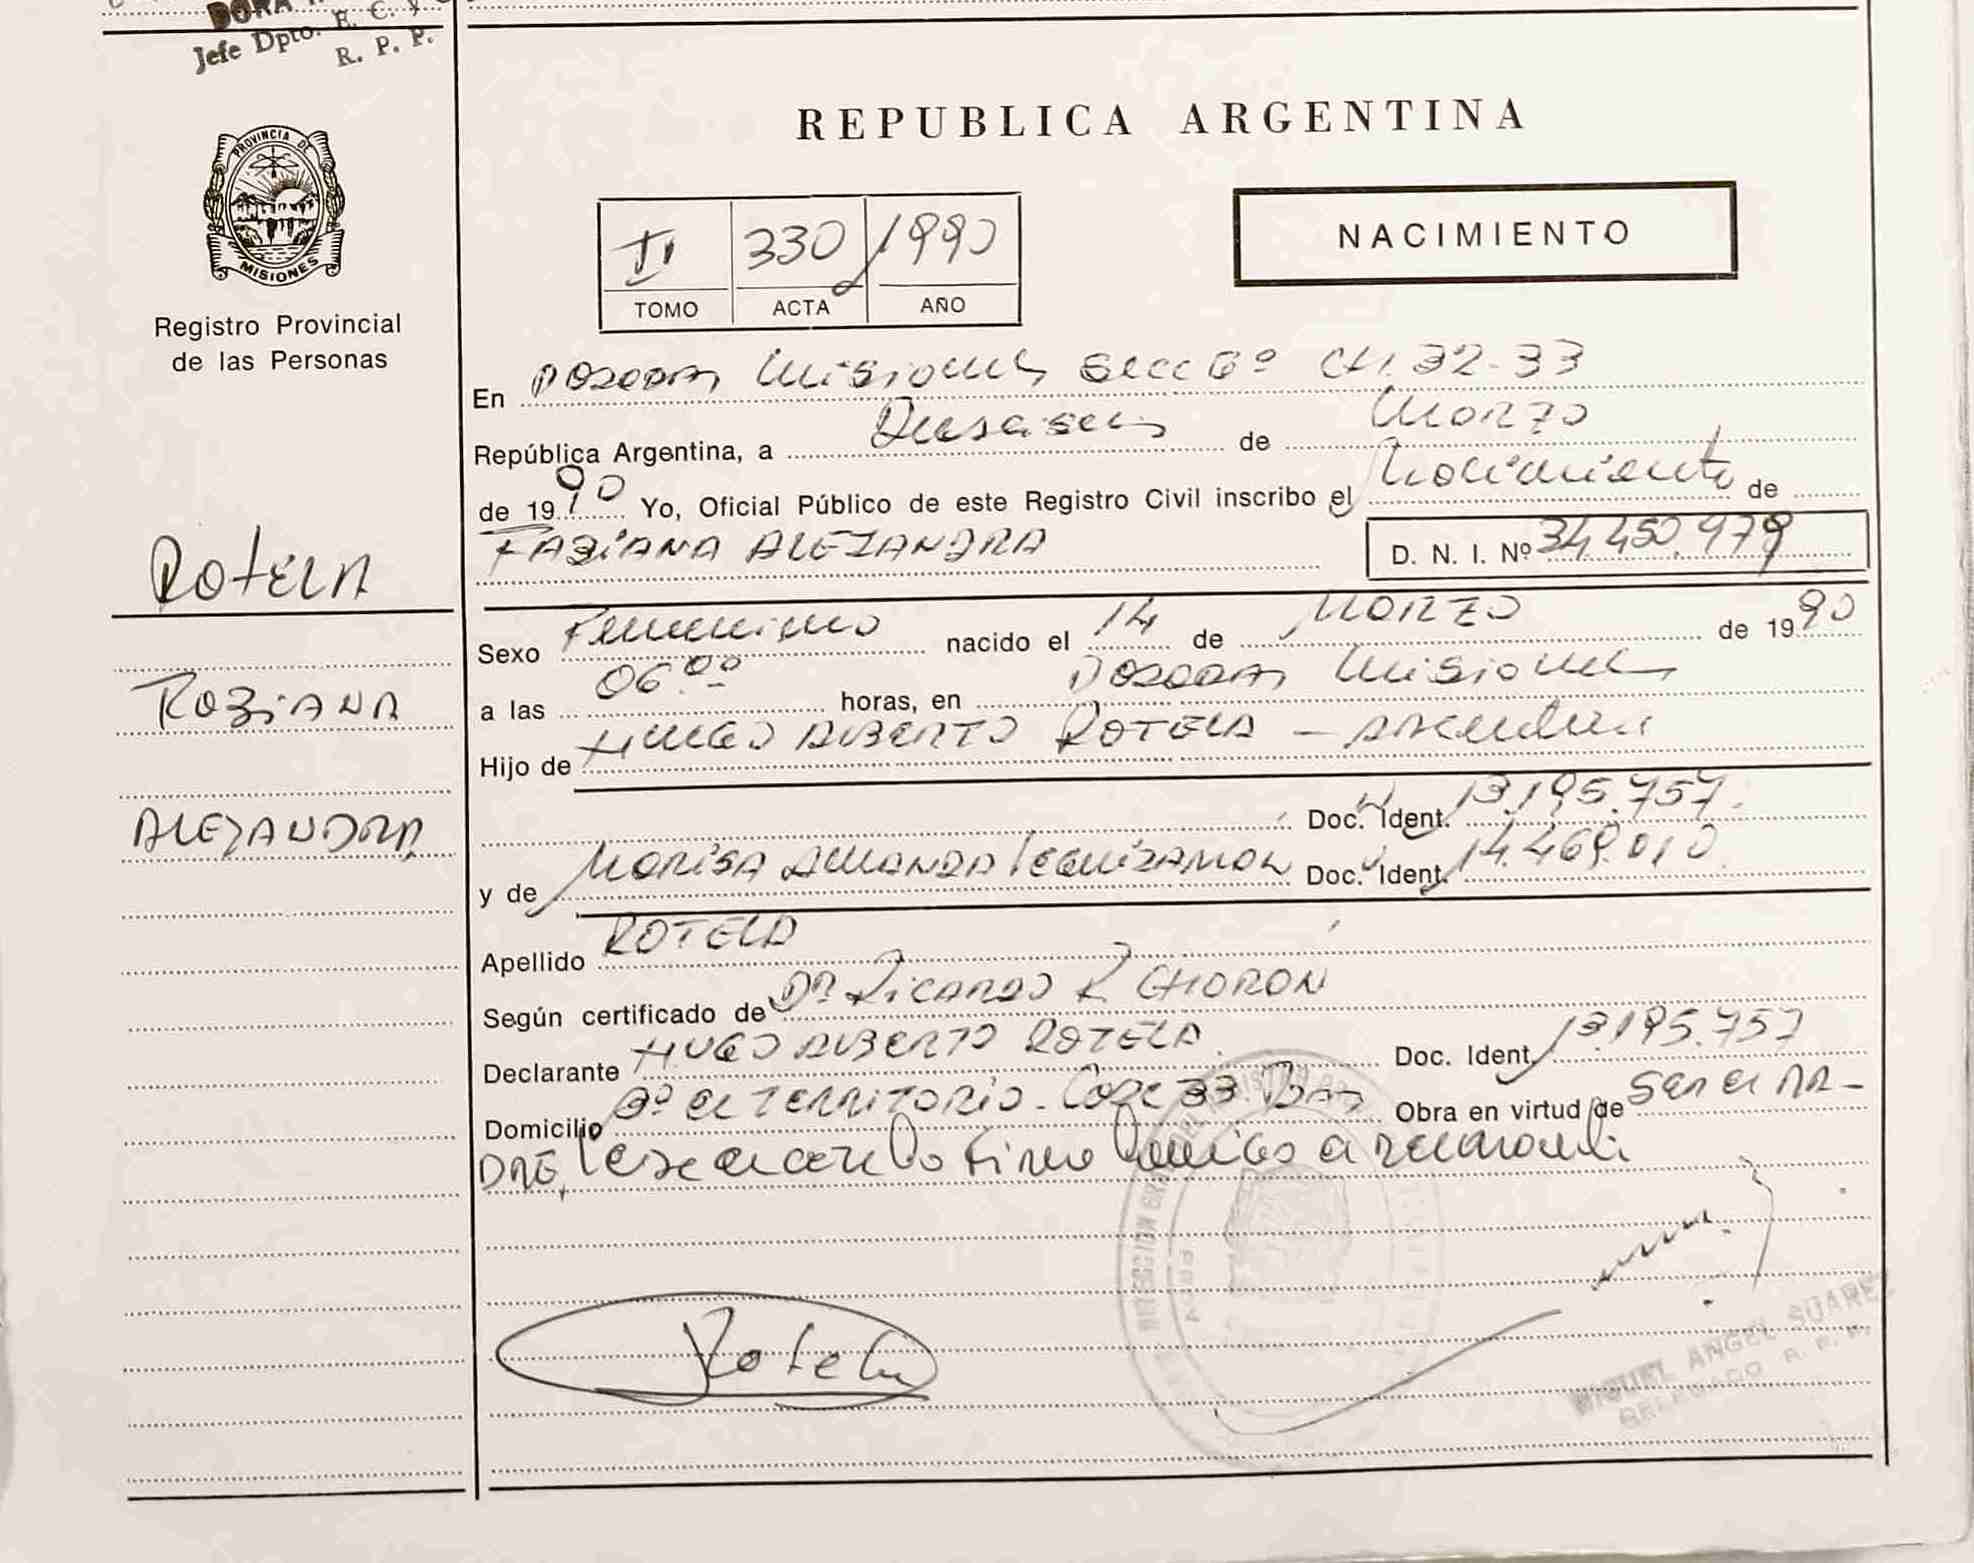 DORA
Jefe Dpto. E. C. y
R. P. P.
PROVINCIA DE
MISIONES
Registro Provincial
de las Personas
ROTELA
FABIANA
ALEJANDRA
REPUBLICA ARGENTINA
II 330 1990
TOMO ACTA AÑO
NACIMIENTO
En POSADAS Misiones Secc 6º CH. 32-33
República Argentina, a Dieciseis de Marzo
de 1990 Yo, Oficial Público de este Registro Civil inscribo el Nacimiento de
FABIANA ALEJANDRA D. N. I. Nº 34.450.979
Sexo Femenino nacido el 14 de MARZO de 1990
a las 06.00 horas, en POSADAS Misiones
Hijo de HUGO ALBERTO ROTELA - Argentina
Doc. Ident. 13.195.757.
y de MARISA AMANDA LEGUIZAMON Doc. Ident. 14.469.010.
Apellido ROTELA
Según certificado de DR. RICARDO R. CHORON
Declarante HUGO ALBERTO ROTELA. Doc. Ident. 13.195.757
Domicilio Bº el TERRITORIO - Casa 33 Obra en virtud de Ser el PA-
DRE,
Rotela
MIGUEL ANGEL SUAREZ
DELEGADO R. P. P.